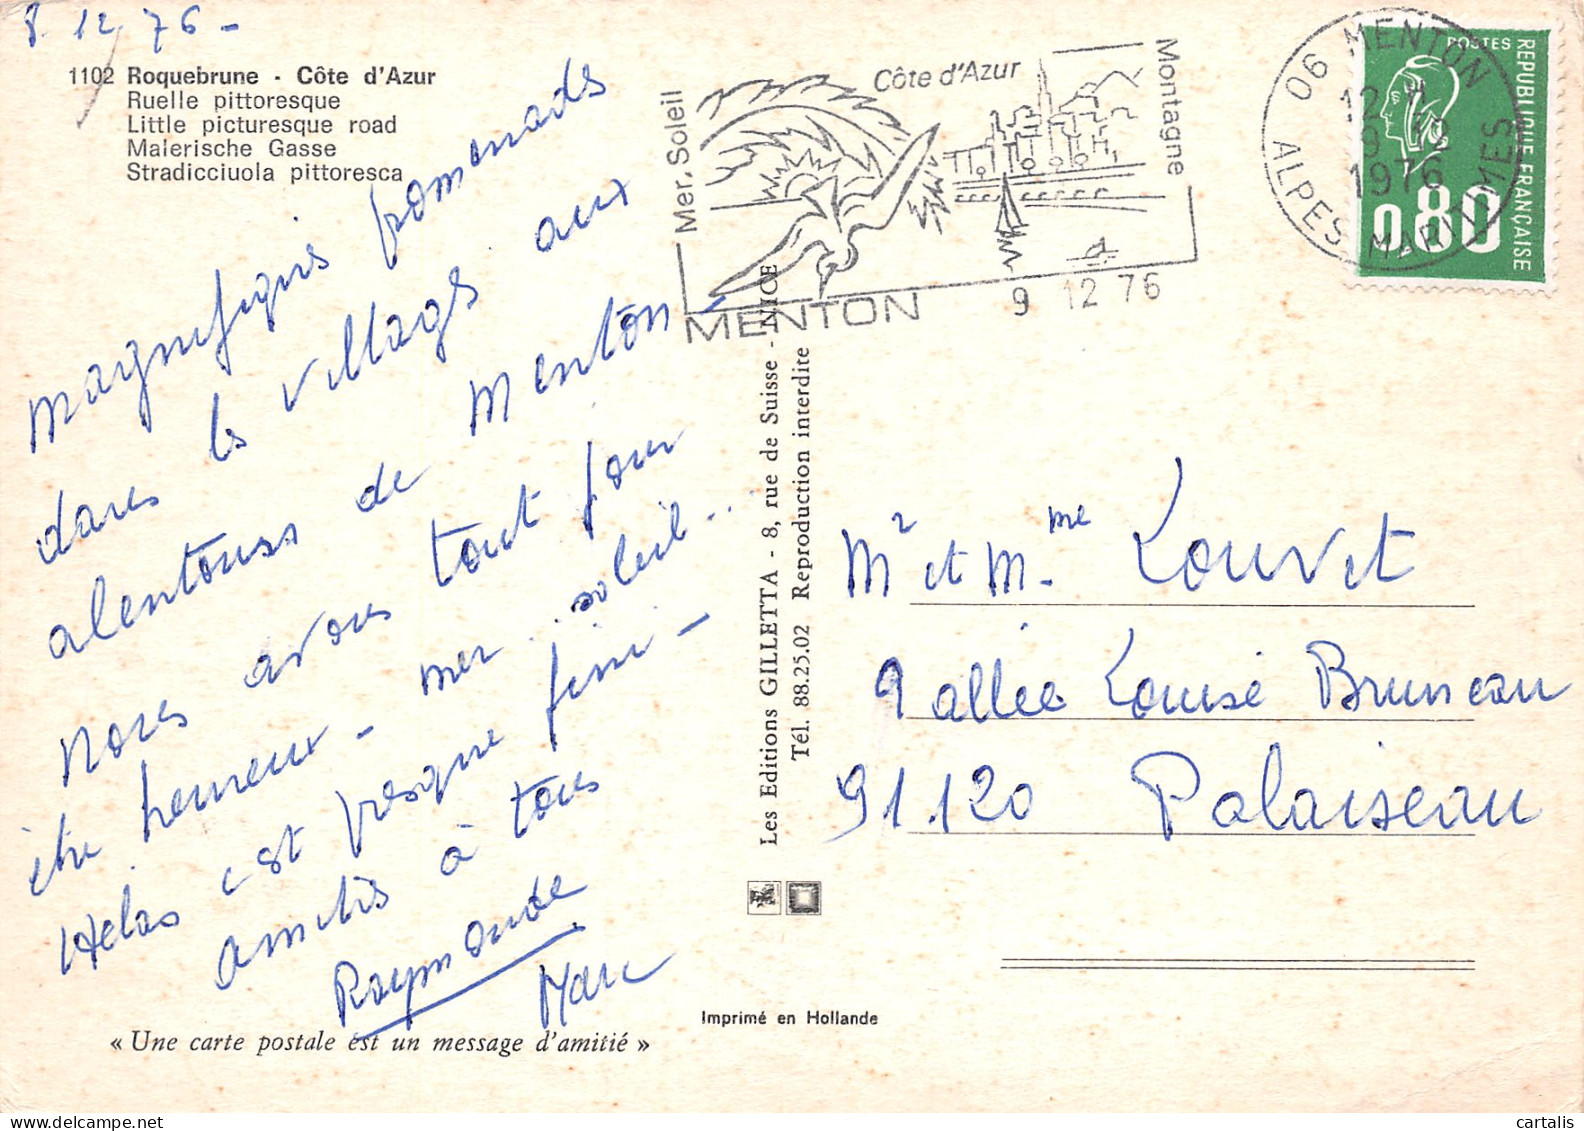 8.12.76 -
1102 Roquebrune - Côte d'Azur
Ruelle pittoresque
Little picturesque road
Malerische Gasse
Stradicciuola pittoresca
magnifiques promenades
dans les villages aux
alentours de Menton -
Nous avons tout pour
être heureux - mer.. soleil...
Hélas c'est presque fini -
amitiés à tous
Raymonde
Marc
« Une carte postale est un message d'amitié »
Mer, Soleil
Côte d'Azur
Montagne
MENTON
9 12 76
06 MENTON
12 H
9 12
1976
ALPES MARITIMES
POSTES
REPUBLIQUE FRANÇAISE
0,80
Les Editions GILLETTA - 8, rue de Suisse - NICE
Tél. 88.25.02 Reproduction interdite
Mr et Mme Louvet
9 allée Louise Bruneau
91.120 Palaiseau
Imprimé en Hollande
cartalis